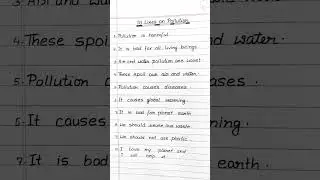 10 Lines on Pollution
1. Pollution is harmful
2. It is bad for all living beings
3. Air and water pollution are worst
4. These spoil our air and water.
5. Pollution causes diseases
6. It causes global warming.
7. It is bad for planet earth
8. We should reuse our waste
9. We should not use plastic
10. I love my planet and
I will help it
3. Air and
water
4. These spoi
nd water.
5. Pollution
ases.
6. It causes
ing.
7. It is bad
earth.